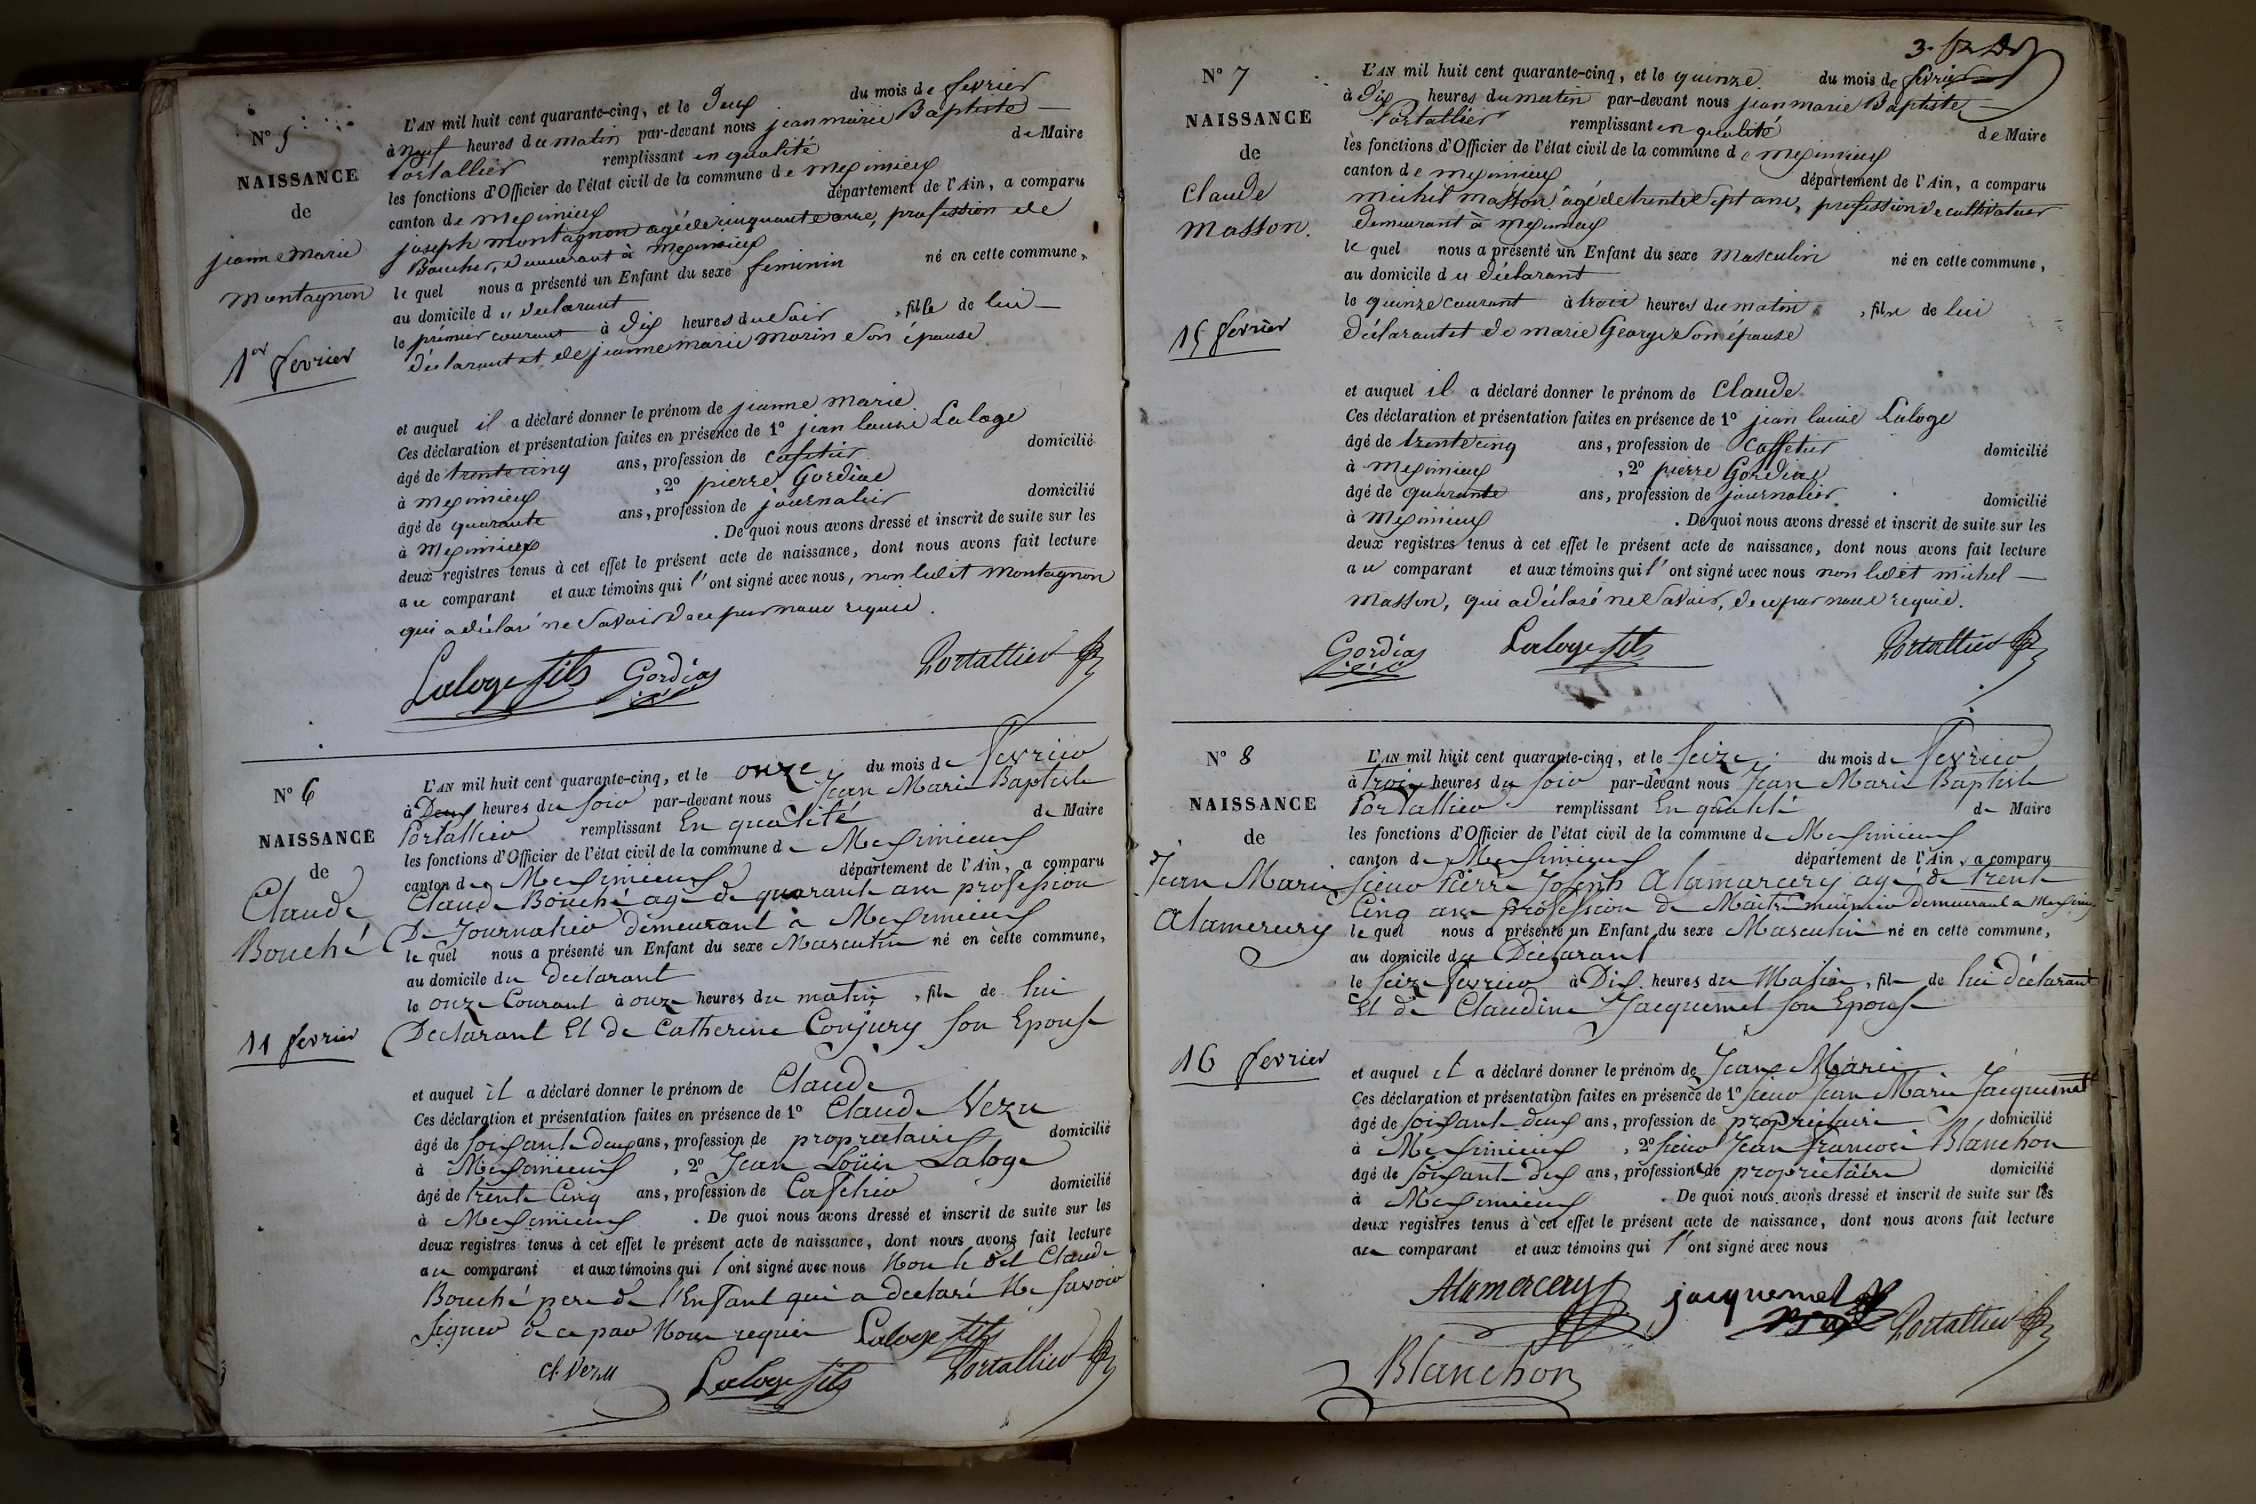 N° 5
NAISSANCE
de
jeanne marie
montagnon
1er fevrier
L'AN mil huit cent quarante-cinq, et le deux du mois de fevrier
à neuf heures du matin par-devant nous jean marie Baptiste
Portallier remplissant en qualité de Maire
les fonctions d'Officier de l'état civil de la commune de meximieux
canton de meximieux département de l'Ain, a comparu
joseph montagnon agé de cinquante ans, profession de
Boucher, demeurant à meximieux
le quel nous a présenté un Enfant du sexe feminin né en cette commune,
au domicile du declarant
le prémier courant à dix heures du soir, fille de lui
déclarant et de jeanne marie morin son épouse
et auquel il a déclaré donner le prénom de jeanne marie
Ces déclaration et présentation faites en présence de 1° jean louis Laloge
âgé de trente cinq ans, profession de cafetier domicilié
à meximieux, 2° pierre Gordias
âgé de quarante ans, profession de journalier domicilié
à Meximieux. De quoi nous avons dressé et inscrit de suite sur les
deux registres tenus à cet effet le présent acte de naissance, dont nous avons fait lecture
au comparant et aux témoins qui l'ont signé avec nous, non ledit montagnon
qui a déclaré ne savoir de ce par nous requis.
Laloge fils Gordias Portallier
N° 6
NAISSANCE
de
Claude
Bouché
11 fevrier
L'AN mil huit cent quarante-cinq, et le onze du mois de fevrier
à Deux heures du soir par-devant nous Jean Marie Baptiste
Portallier remplissant En qualité de Maire
les fonctions d'Officier de l'état civil de la commune de Meximieux
canton de Meximieux département de l'Ain, a comparu
Claude Bouché agé de quarante ans profession
De Journalier demeurant à Meximieux
le quel nous a présenté un Enfant du sexe Masculin né en cette commune,
au domicile du declarant
le onze Courant à onze heures du matin, fils de lui
Declarant Et de Catherine Conjury son Epouse
et auquel il a déclaré donner le prénom de Claude
Ces déclaration et présentation faites en présence de 1° Claude Vezu
âgé de soixante deux ans, profession de propriétaire domicilié
à Meximieux, 2° Jean Louis Laloge
âgé de trente Cinq ans, profession de Cafetier domicilié
à Meximieux. De quoi nous avons dressé et inscrit de suite sur les
deux registres tenus à cet effet le présent acte de naissance, dont nous avons fait lecture
au comparant et aux témoins qui l'ont signé avec nous Non le dit Claude
Bouché pere de l'Enfant qui a declaré Ne savoir
signer de ce par Nous requis Laloge fils
cl. Vezu Laloge fils Portallier
N° 7
NAISSANCE
de
Claude
Masson.
15 fevrier
L'AN mil huit cent quarante-cinq, et le quinze du mois de fevrier
à dix heures du matin par-devant nous jean marie Baptiste
Portallier remplissant en qualité de Maire
les fonctions d'Officier de l'état civil de la commune de meximieux
canton de meximieux département de l'Ain, a comparu
michel masson âgé de trente sept ans, profession de cultivateur
demeurant à meximieux
le quel nous a présenté un Enfant du sexe masculin né en cette commune,
au domicile du déclarant
le quinze courant à trois heures du matin, fils de lui
déclarant et de marie George son épouse
et auquel il a déclaré donner le prénom de Claude
Ces déclaration et présentation faites en présence de 1° jean louis Laloge
âgé de trente cinq ans, profession de Caffetier domicilié
à meximieux, 2° pierre Gordias
âgé de quarante ans, profession de journalier domicilié
à meximieux. De quoi nous avons dressé et inscrit de suite sur les
deux registres tenus à cet effet le présent acte de naissance, dont nous avons fait lecture
au comparant et aux témoins qui l'ont signé avec nous non ledit michel
masson, qui a déclaré ne savoir, de ce par nous requis.
Gordias Laloge fils Portallier
N° 8
NAISSANCE
de
Jean Marie
Alamercery
16 fevrier
L'AN mil huit cent quarante-cinq, et le seize du mois de fevrier
à trois heures du soir par-devant nous Jean Marie Baptiste
Portallier remplissant En qualité de Maire
les fonctions d'Officier de l'état civil de la commune de Meximieux
canton de Meximieux département de l'Ain, a comparu
sieur Pierre Joseph Alamercery agé de trente
Cinq ans profession de Maitre demeurant a Meximieux
le quel nous a présenté un Enfant du sexe Masculin né en cette commune,
au domicile du Déclarant
le seize fevrier à Dix heures du Matin, fils de lui déclarant
Et de Claudine Jacquemet son Epouse
et auquel il a déclaré donner le prénom de Jean Marie
Ces déclaration et présentation faites en présence de 1° sieur Jean Marie Jacquemet
âgé de soixante deux ans, profession de propriétaire domicilié
à Meximieux, 2° sieur Jean francois Blanchon
âgé de soixante dix ans, profession de propriétaire domicilié
à Meximieux. De quoi nous avons dressé et inscrit de suite sur les
deux registres tenus à cet effet le présent acte de naissance, dont nous avons fait lecture
au comparant et aux témoins qui l'ont signé avec nous
Alamercery jacquemet Portallier
Blanchon